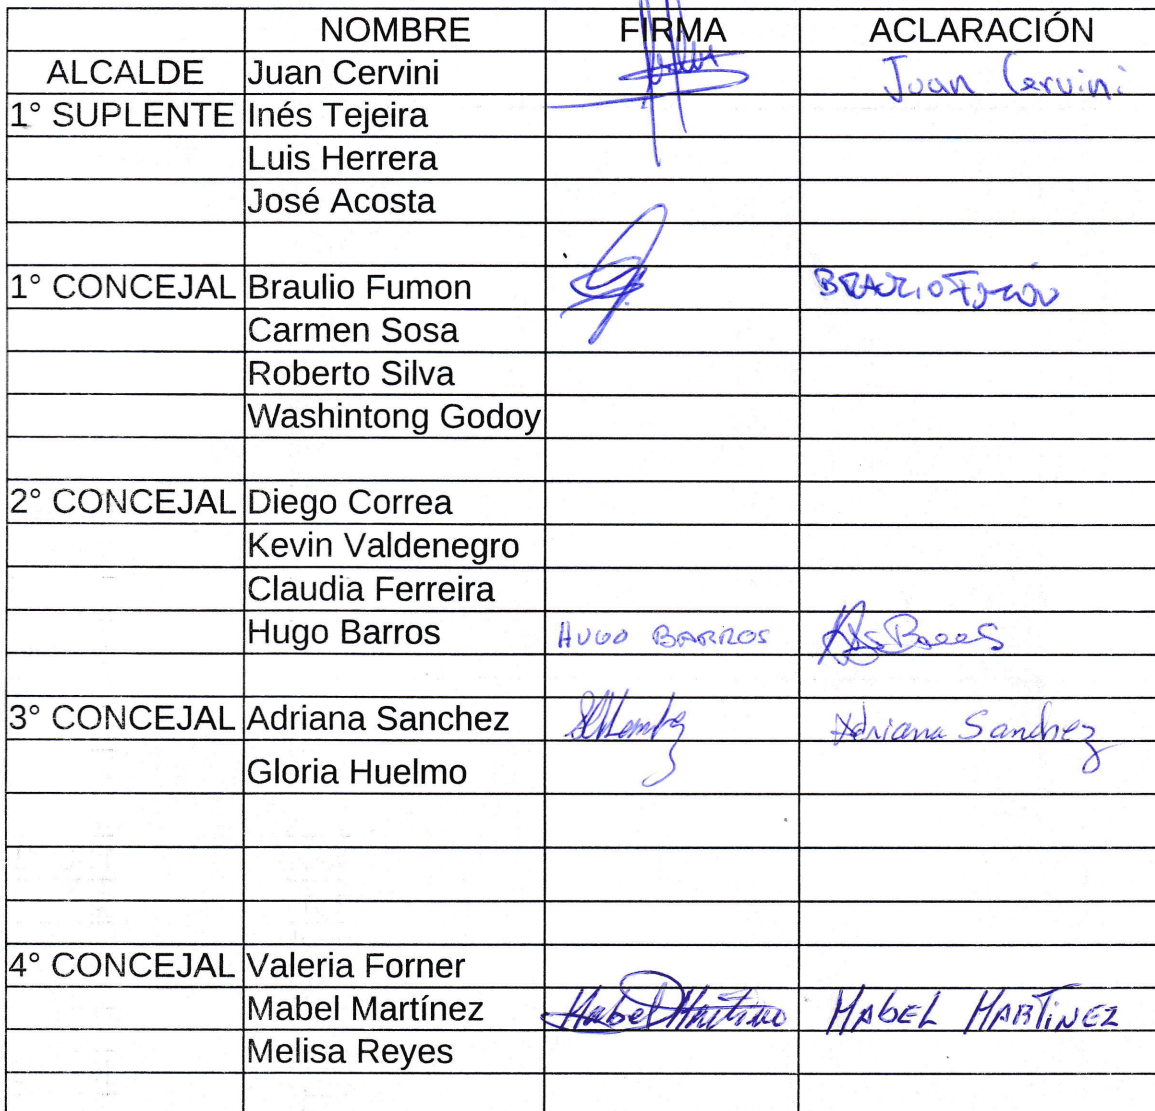 NOMBRE FIRMA ACLARACIÓN
ALCALDE Juan Cervini Juan Cervini
1° SUPLENTE Inés Tejeira
Luis Herrera
José Acosta
1° CONCEJAL Braulio Fumon BRAULIO Fumon
Carmen Sosa
Roberto Silva
Washintong Godoy
2° CONCEJAL Diego Correa
Kevin Valdenegro
Claudia Ferreira
Hugo Barros HUGO BARROS
3° CONCEJAL Adriana Sanchez Adriana Sanchez
Gloria Huelmo
4° CONCEJAL Valeria Forner
Mabel Martínez Mabel Martinez MABEL MARTiNEZ
Melisa Reyes